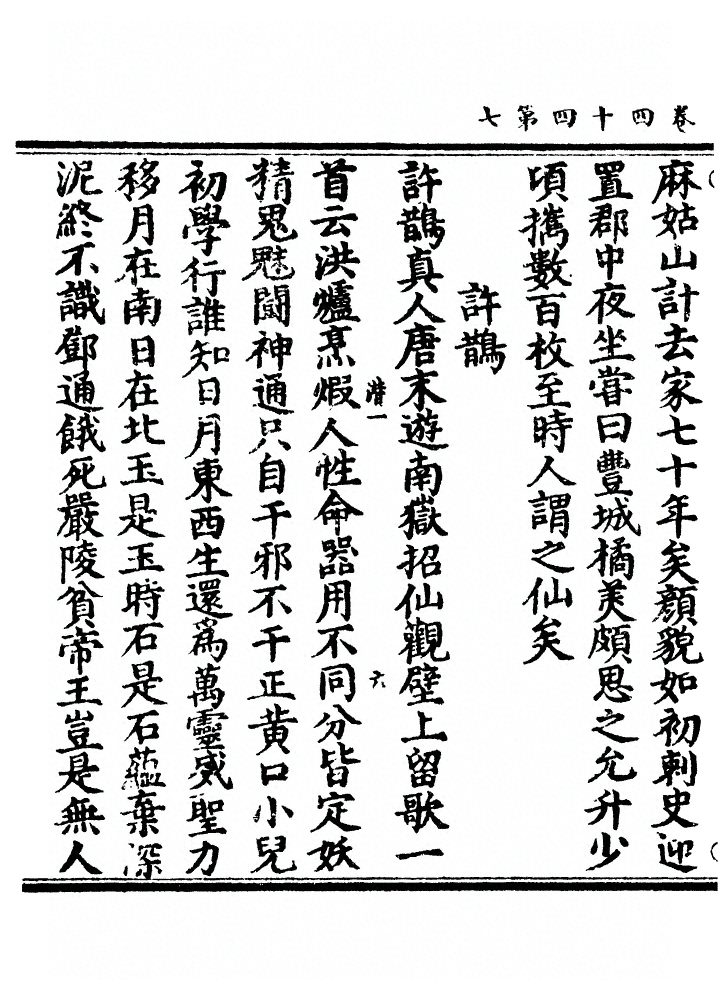 卷四十四第七
麻姑山計去家七十年矣顏貌如初刺史迎
置郡中夜坐嘗曰豐城橘美頗思之允升少
頃攜數百枚至時人謂之仙矣
許鵲
許鵲真人唐末遊南嶽招仙觀壁上留歌一
潜一
六
首云洪爐烹煅人性命器用不同分皆定妖
精鬼魅鬪神通只自干邪不干正黃口小兒
初學行誰知日月東西生還爲萬靈威聖力
移月在南日在北玉是玉時石是石蘊棄深
泥終不識鄧通餓死嚴陵貧帝王豈是無人